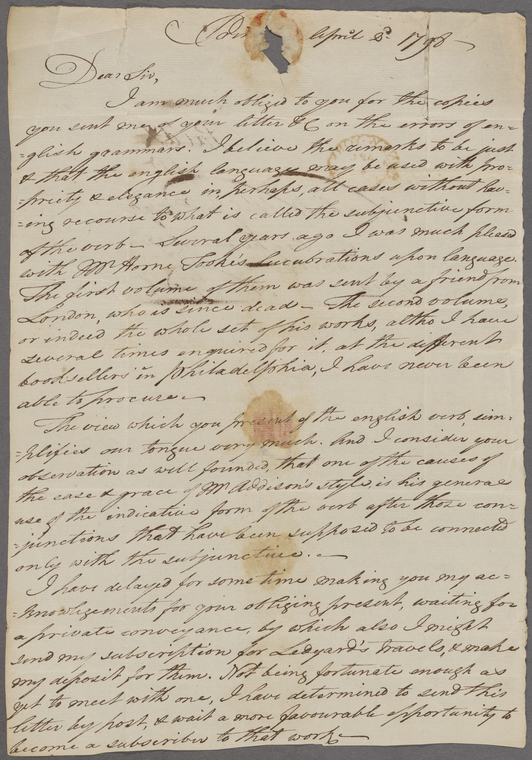 April 2d. 1798 —
Dear Sir,
I am much obliged to you for the copies
you sent me of your letter &c on the errors of en-
=glish grammars. I believe the remarks to be just
& that the english language may be used with pro-
=priety & elegance in, perhaps, all cases without hav-
=ing recourse to what is called the subjunctive form
of the verb — Several years ago I was much pleased
with Mr Horne Tooke's lucubrations upon language.
The first volume of them was sent by a friend from
London, who is since dead — The second volume,
or indeed the whole set of his works, altho I have
several times enquired for it, at the different
booksellers in Philadelphia, I have never been
able to procure —
The view which you present of the english verb, sim-
=plifies our tongue very much. And I consider your
observation as well founded, that one of the causes of
the ease & grace of Mr Addison's style is his general
use of the indicative form of the verb after those con-
=junctions that have been supposed to be connected
only with the subjunctive. —
I have delayed for some time making you my ac-
=knowlegements for your obliging present, waiting for
a private conveyance, by which also I might
send my subscription for Ledyard's Travels, & make
my deposit for them. Not being fortunate enough as
yet to meet with one, I have determined to send this
letter by post, & wait a more favourable opportunity to
become a subscriber to that work —